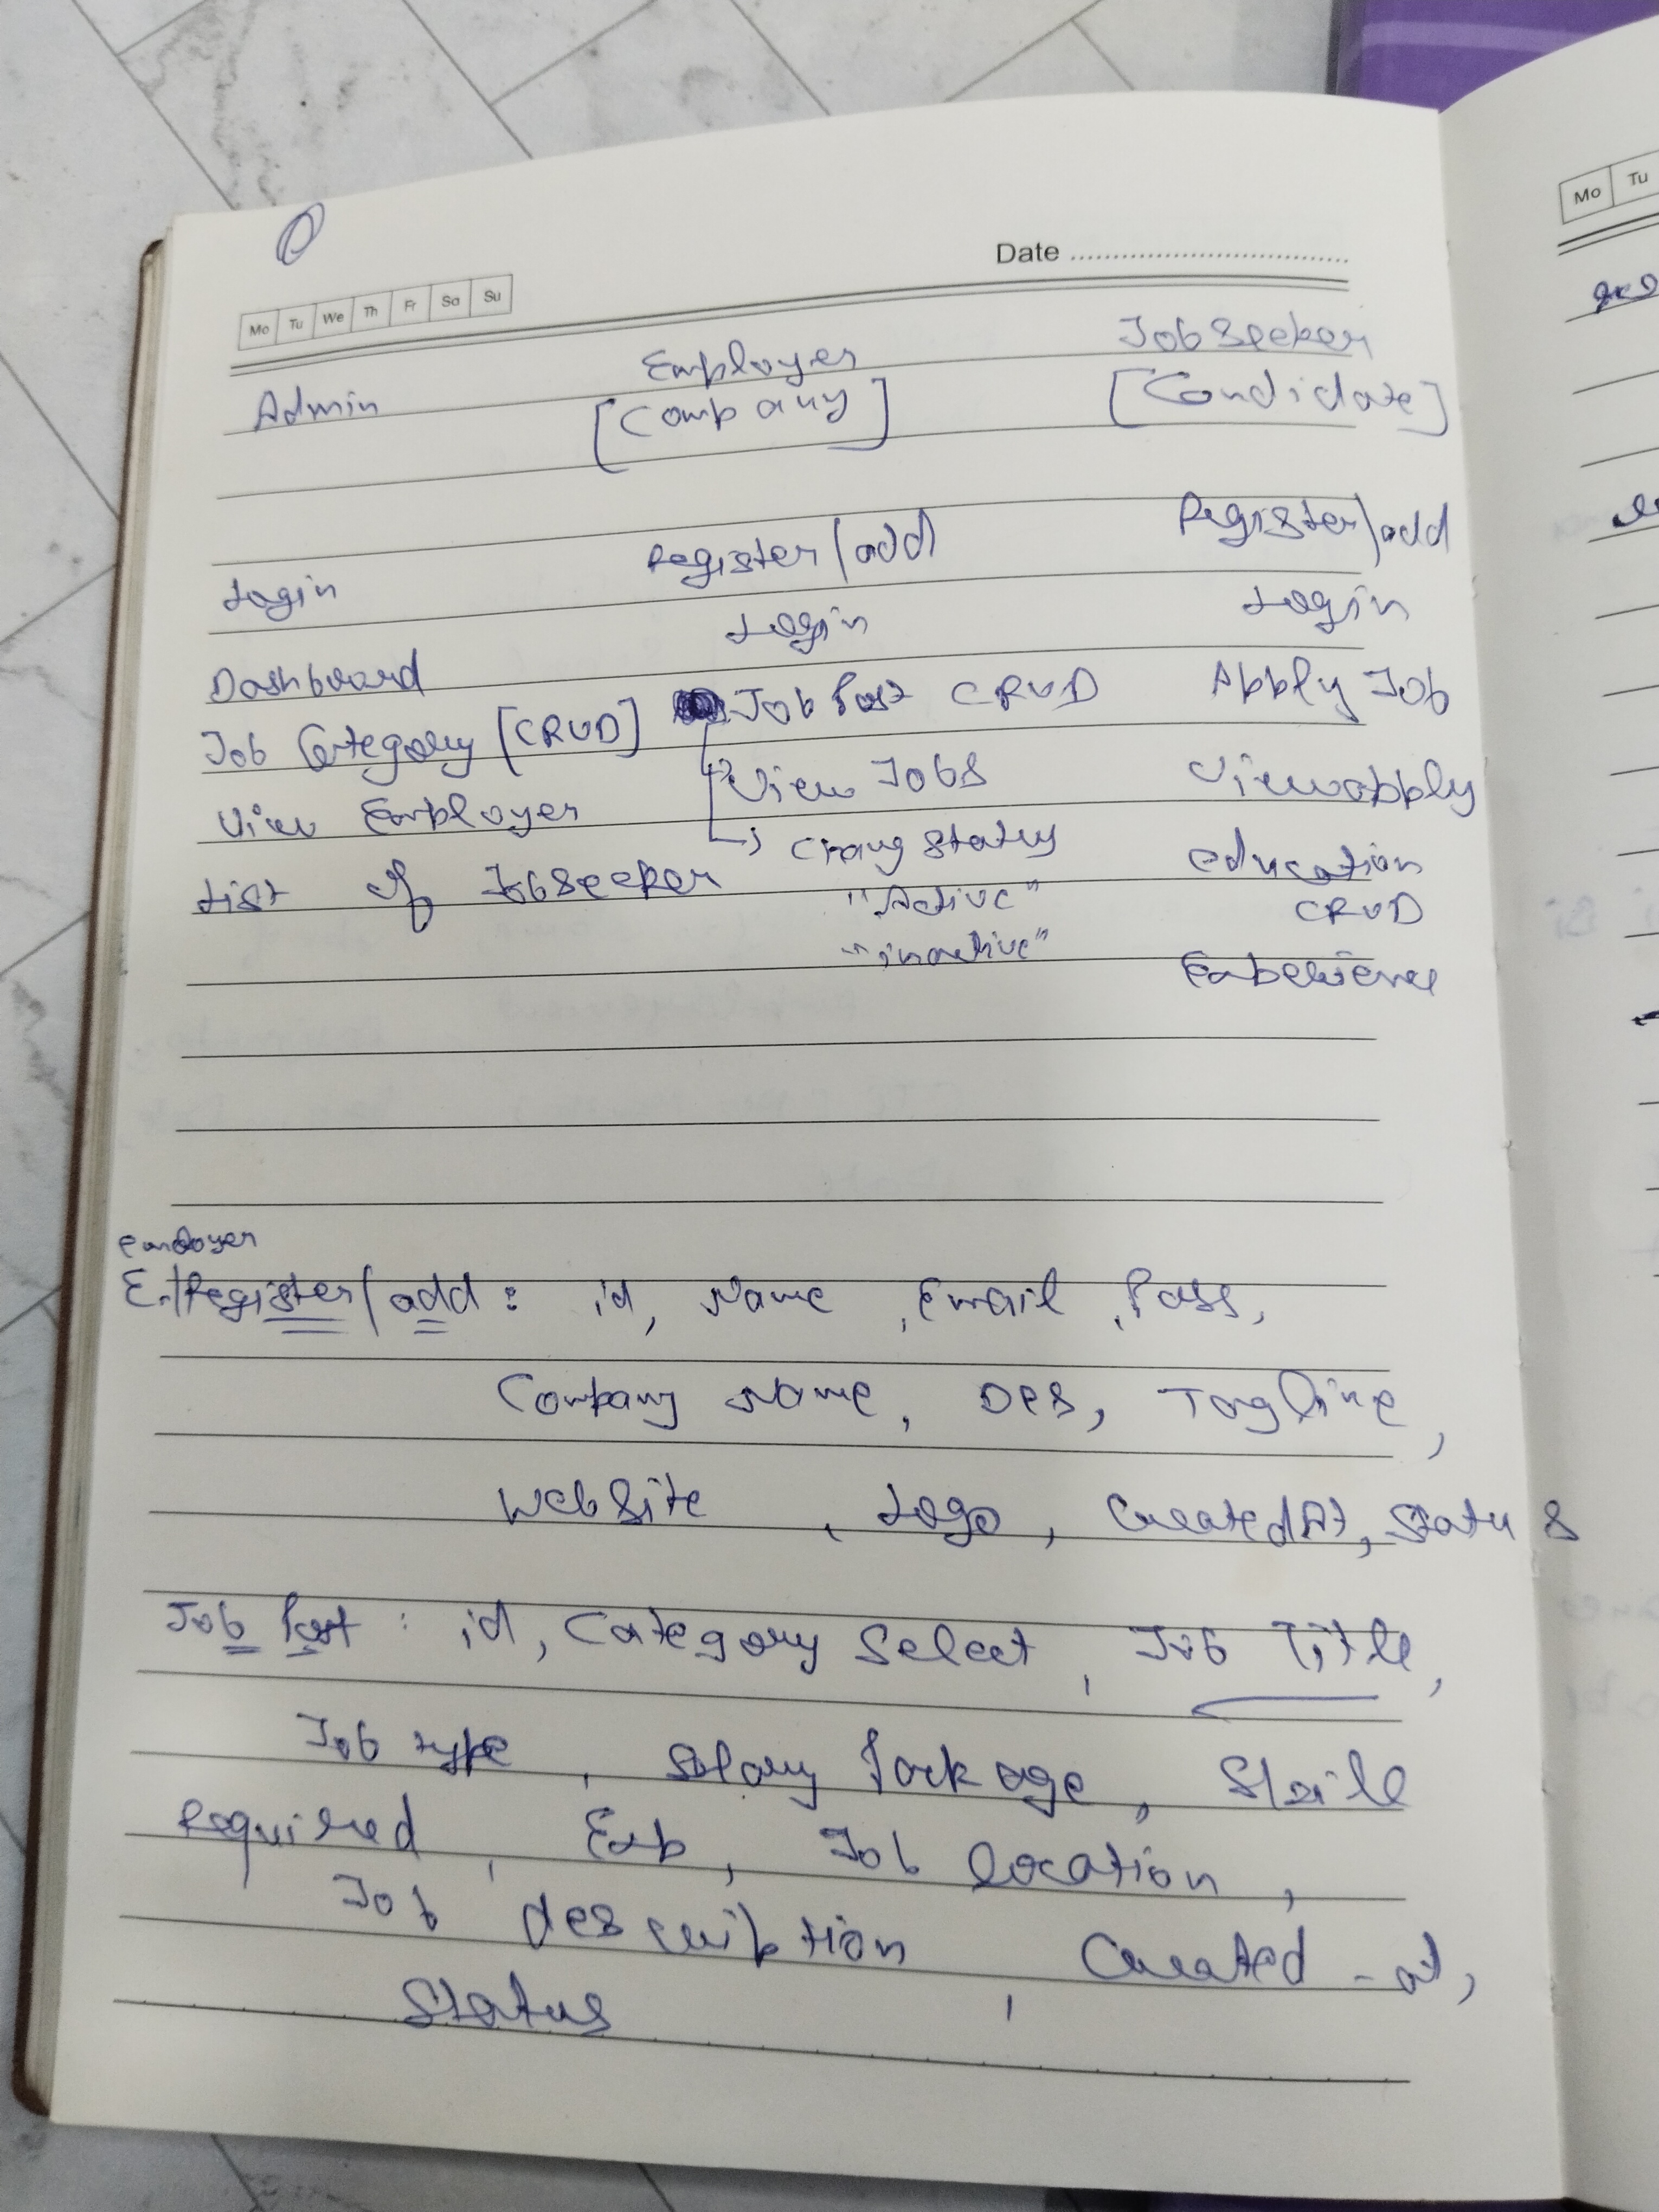 Date
Mo Tu We Th Fr Sa Su
Mo Tu
Admin
Employer
[Company]
Job Seeker
[Candidate]
Login
Dashboard
Job Category [CRUD]
View Employer
List of Jobseeker
Register/add
Login
Job Post CRUD
View Jobs
Status
"Active"
"inactive"
Register/add
Login
Apply Job
View apply
education
CRUD
Experience
employer
E./Register/add : id, Name, Email, Pass,
Company Name, Des, Tagline,
Website, Logo, CreatedAt, Status
Job Post : id, Category Select, Job Title,
Job type, Salary Package, Skill
Required, Exp, Job location,
Job description, Created-at,
Status